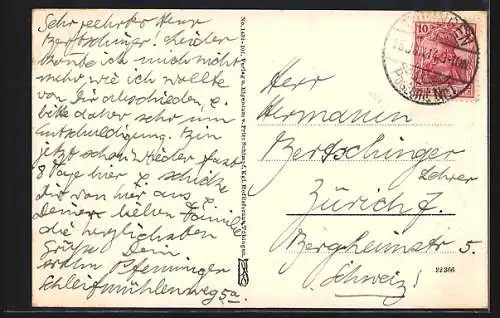 Sehr geehrter Herr
Bertschinger! Leider
konnte ich mich nicht
mehr wie ich wollte
von Dir abschieden, &
bitte daher sehr um
Entschuldigung. Bin
jetzt schon wieder fast
8 Tage hier & schicke
Dir von hier aus &
Deiner lieben Familie
die herzlichsten
Grüße. Dein
Pfenninger
Schleifmühleweg 5a.
Herr
Hermann
Bertschinger
Lehrer
Zürich
Bergheimstr 5.
Schweiz!
22366
10